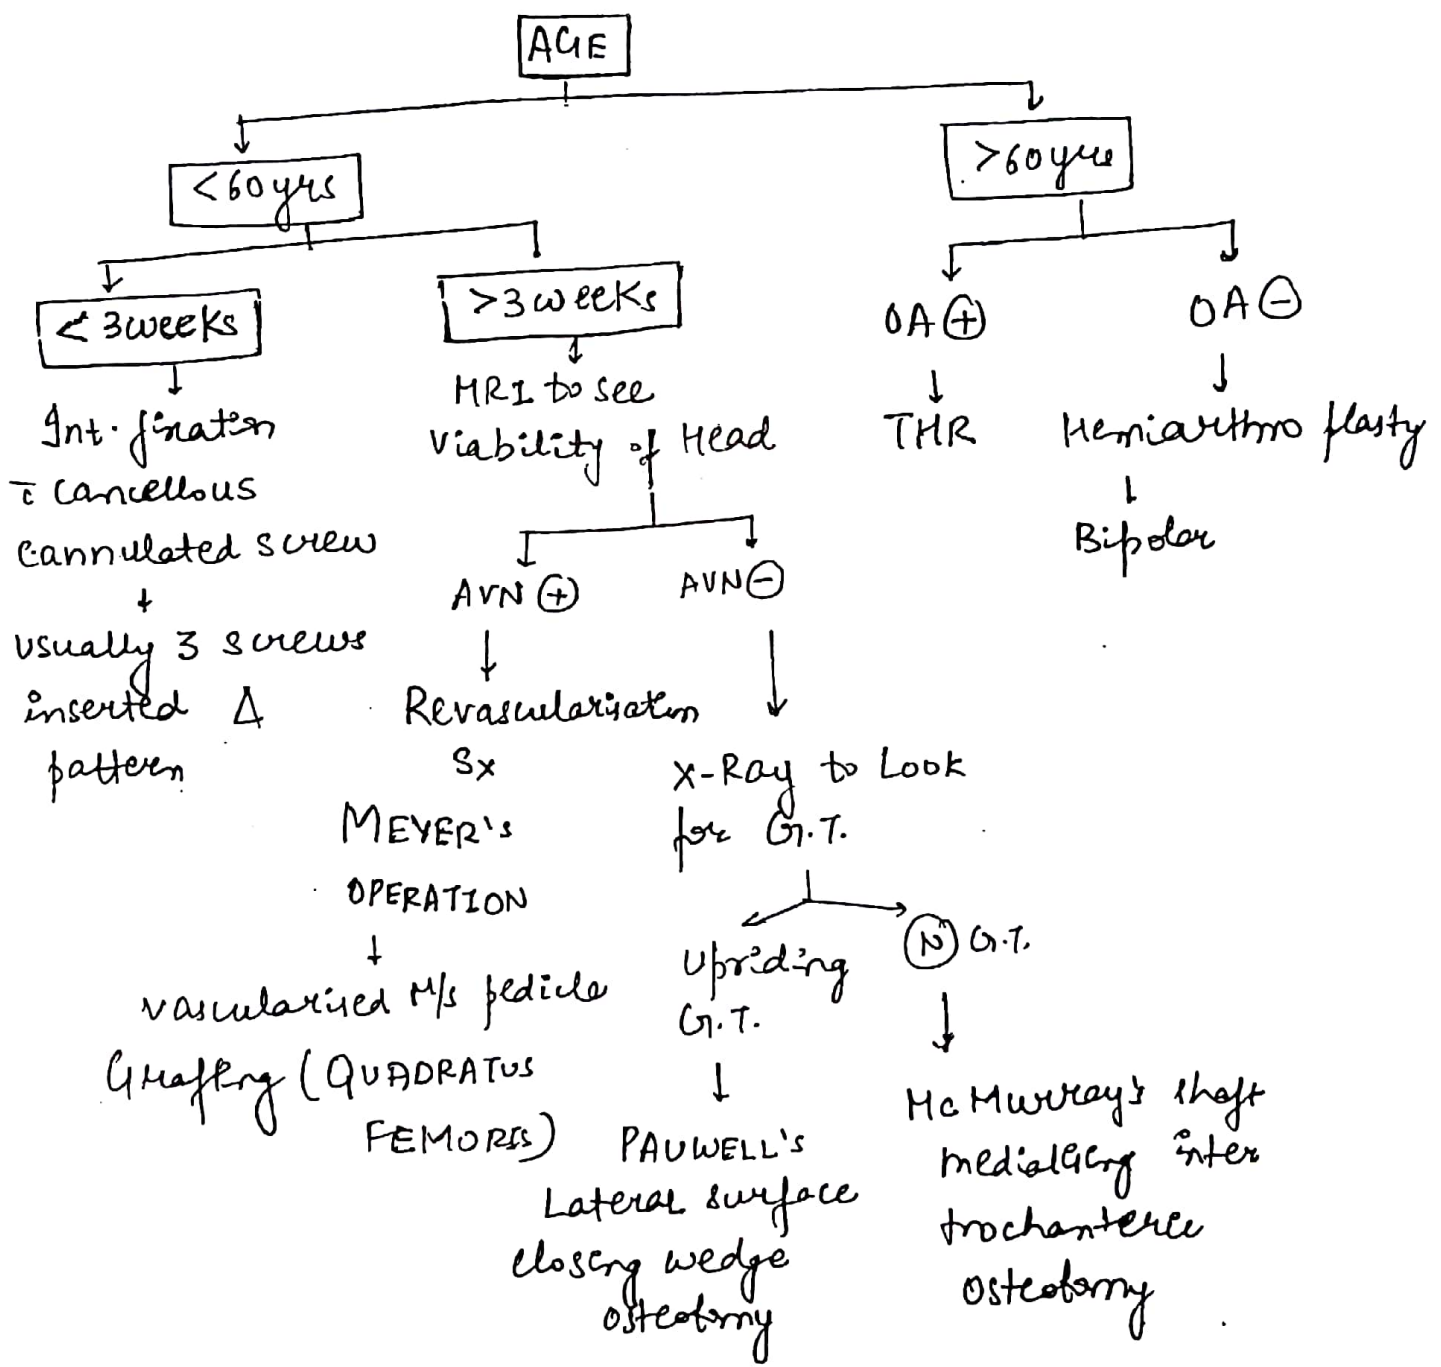 AGE
<60yrs
>60yrs
<3weeks
>3weeks
OA⊕
OA⊖
Int. fixation
c̄ cancellous
cannulated screw
↓
usually 3 screws
inserted Δ
pattern
MRI to see
viability of Head
AVN⊕
AVN⊖
Revascularisation
Sx
MEYER'S
OPERATION
↓
vascularised m/s pedicle
Grafting (QUADRATUS
FEMORIS)
X-Ray to Look
for G.T.
Upriding
G.T.
Ⓝ G.T.
PAUWELL'S
Lateral surface
closing wedge
osteotomy
McMurray's shaft
medialising inter
trochanteric
osteotomy
THR
Hemiarthroplasty
↓
Bipolar